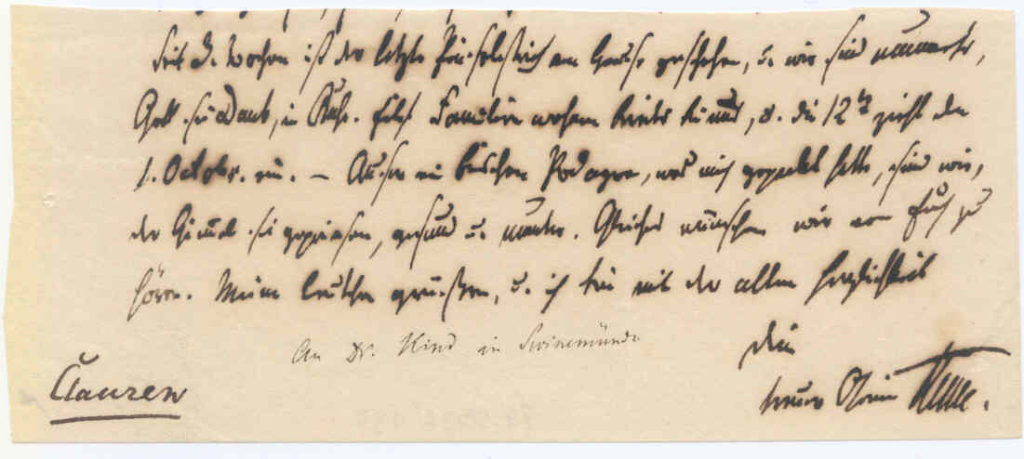 Seit d. Wochen ist der letzte Pinselstrich am Hause geschehen, u. wir sind nunmehr,
Gott sei Dank, in Ruhe. Elf Familien wohnen bereits, u. die 12te zieht den
1. Octobr. ein. – Ausser ein bischen Podagra, was mich gepackt hatte, sind wir,
der Himmel sei gepriesen, gesund u. munter. Gleiches wünschen wir von Euch zu
hören. Meine Leuthe grüßen, u. ich bin mit der alten Herzlichkeit
Dein
An Dr. Kind in Swinemünde
treuer
Clauren